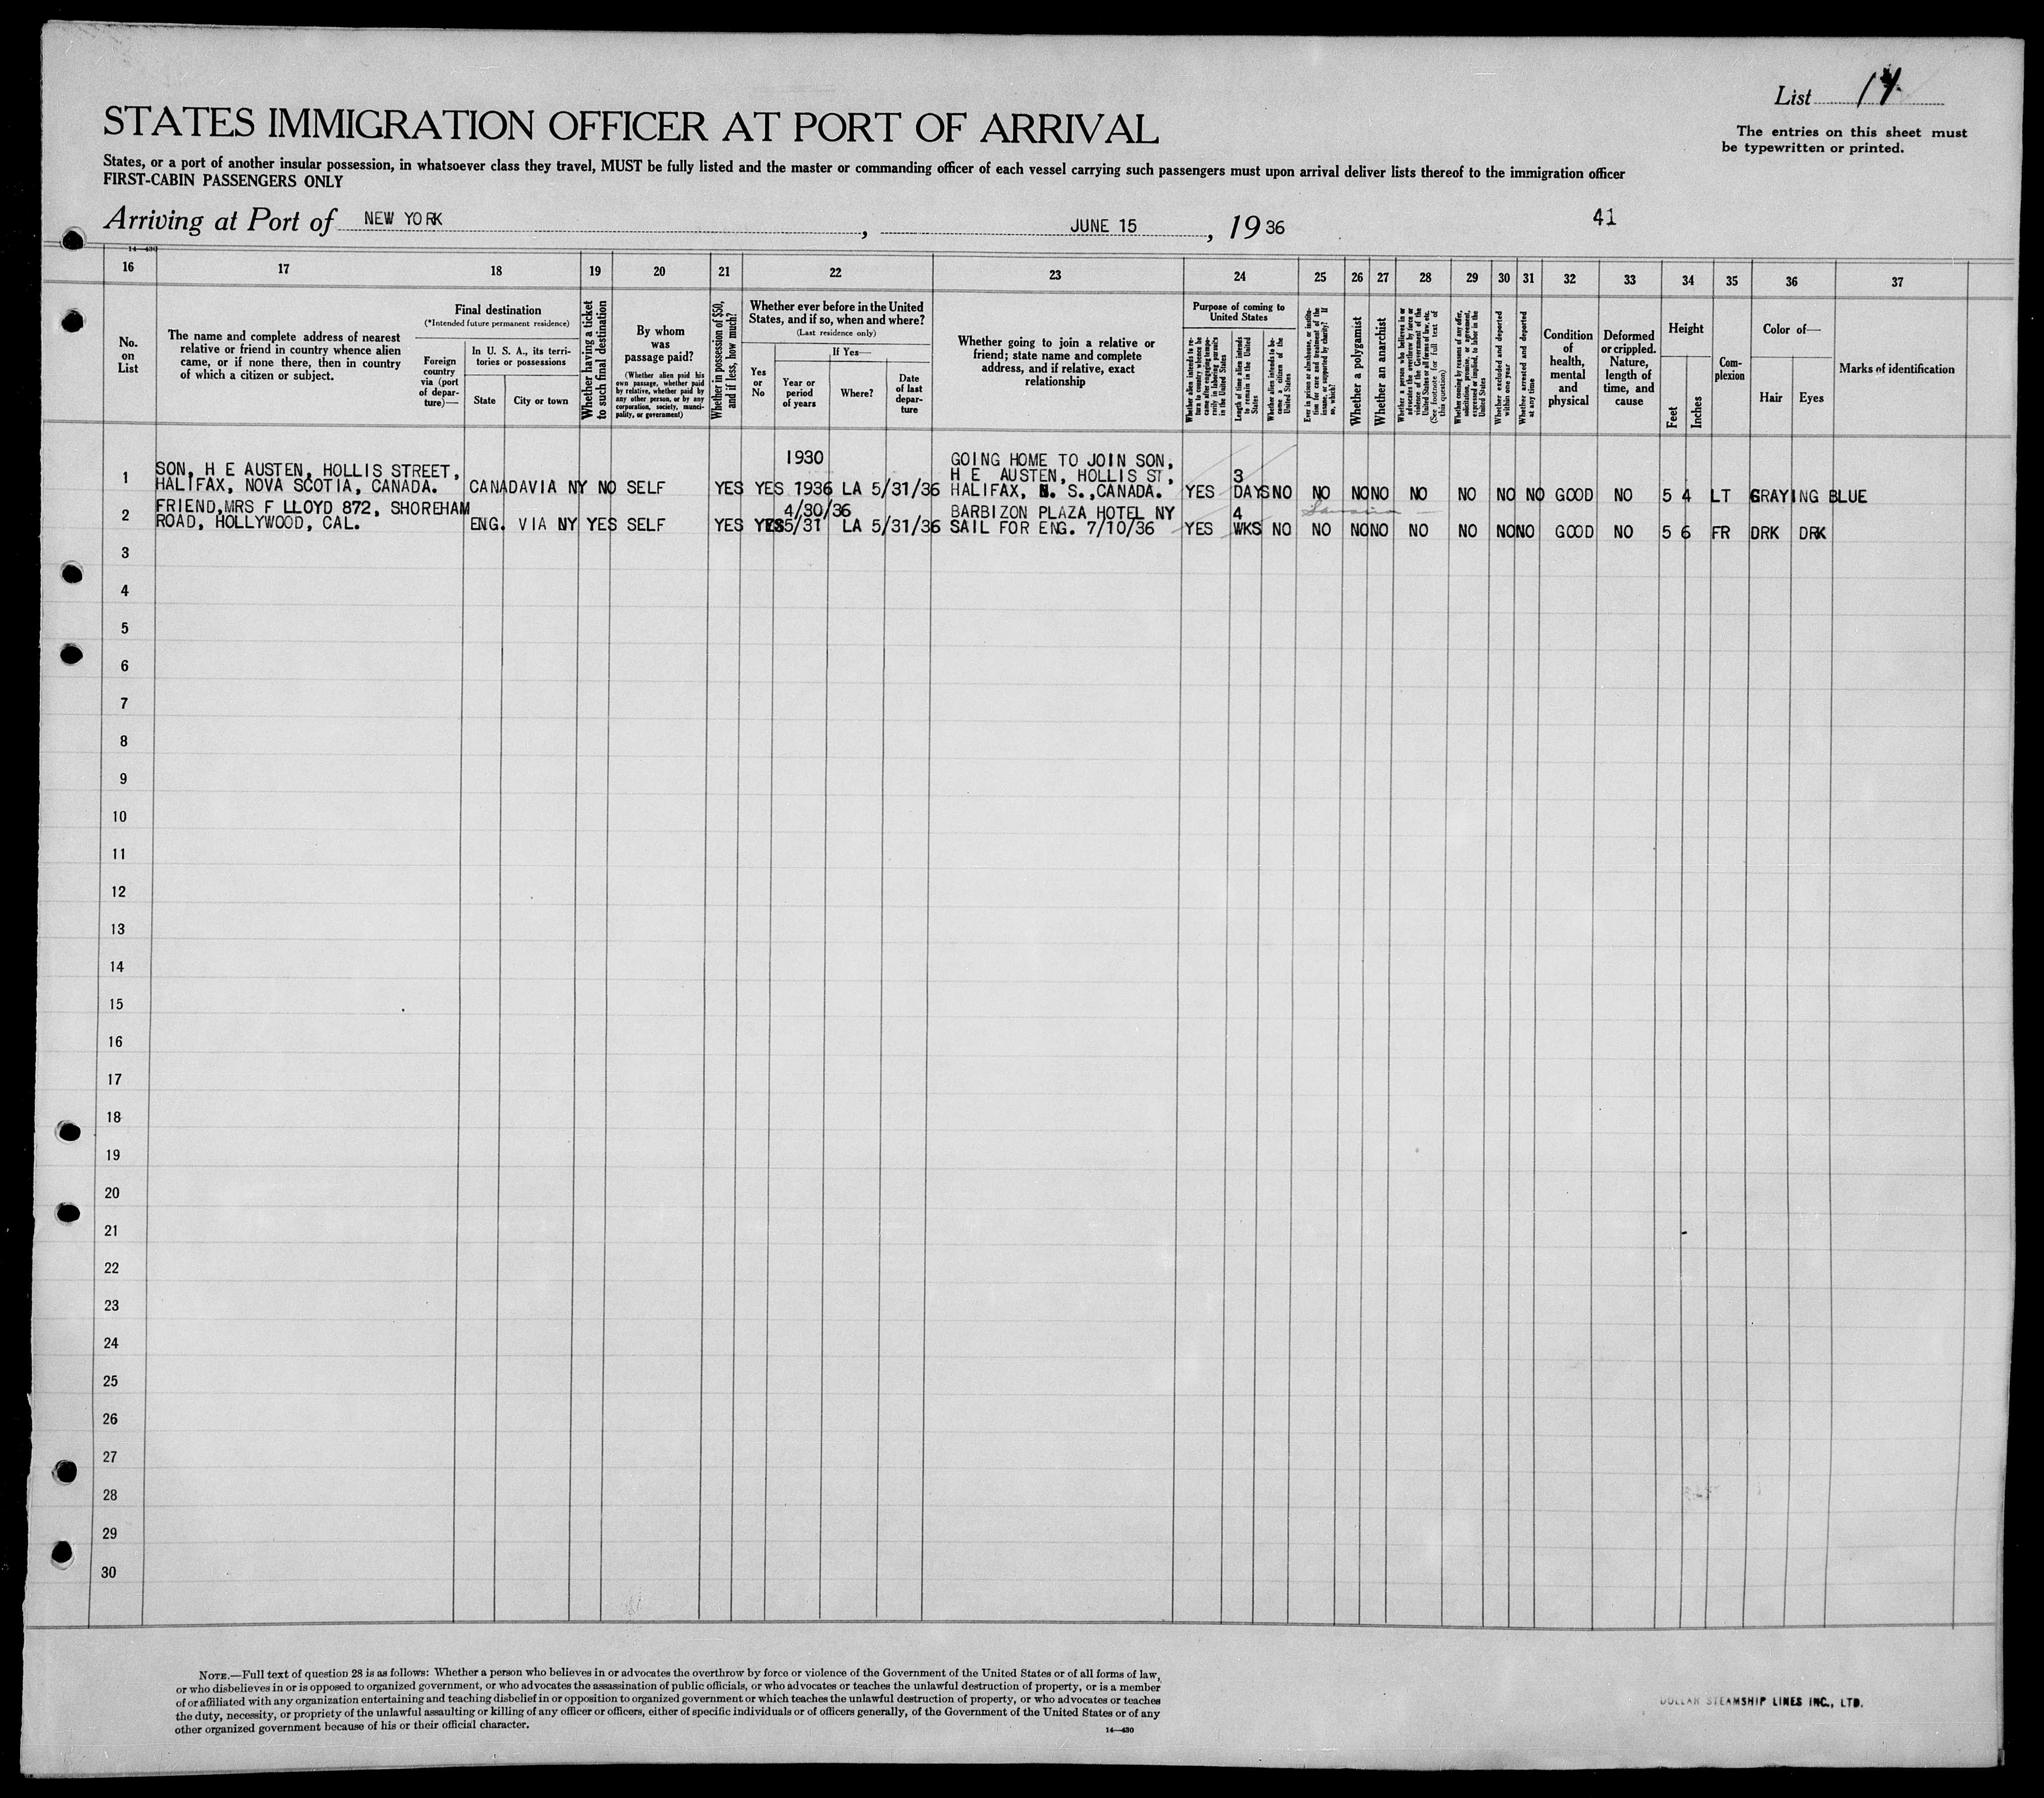 List 14
STATES IMMIGRATION OFFICER AT PORT OF ARRIVAL
The entries on this sheet must
be typewritten or printed.
States, or a port of another insular possession, in whatsoever class they travel, MUST be fully listed and the master or commanding officer of each vessel carrying such passengers must upon arrival deliver lists thereof to the immigration officer
FIRST-CABIN PASSENGERS ONLY
Arriving at Port of NEW YORK, JUNE 15, 1936
41
14—430
16 17 18 19 20 21 22 23 24 25 26 27 28 29 30 31 32 33 34 35 36 37
No.
on
List
The name and complete address of nearest
relative or friend in country whence alien
came, or if none there, then in country
of which a citizen or subject.
Final destination
(*Intended future permanent residence)
Foreign
country
via (port
of depar-
ture)—
In U. S. A., its terri-
tories or possessions
State
City or town
Whether having a ticket
to such final destination
By whom
was
passage paid?
(Whether alien paid his
own passage, whether paid
by relative, whether paid by
any other person, or by any
corporation, society, munici-
pality, or government)
Whether in possession of $50,
and if less, how much?
Whether ever before in the United
States, and if so, when and where?
(Last residence only)
Yes
or
No
If Yes—
Year or
period
of years
Where?
Date
of last
depar-
ture
Whether going to join a relative or
friend; state name and complete
address, and if relative, exact
relationship
Purpose of coming to
United States
Whether alien intends to re-
turn to country whence he
came after engaging tempo-
rarily in laboring pursuits
in the United States
Length of time alien intends
to remain in the United
States
Whether alien intends to be-
come a citizen of the
United States
Ever in prison or almshouse, or institu-
tion for care and treatment of the
insane, or supported by charity? If
so, which?
Whether a polygamist
Whether an anarchist
Whether a person who believes in or
advocates the overthrow by force or
violence of the Government of the
United States or all forms of law, etc.
(See footnote for full text of
this question)
Whether coming by reasons of any offer,
solicitation, promise, or agreement,
expressed or implied, to labor in the
United States
Whether excluded and deported
within one year
Whether arrested and deported
at any time
Condition
of
health,
mental
and
physical
Deformed
or crippled.
Nature,
length of
time, and
cause
Height
Feet
Inches
Com-
plexion
Color of—
Hair
Eyes
Marks of identification
1930
GOING HOME TO JOIN SON,
SON, H E AUSTEN, HOLLIS STREET, H E AUSTEN, HOLLIS ST, 3
1 HALIFAX, NOVA SCOTIA, CANADA. CANADA VIA NY NO SELF YES YES 1936 LA 5/31/36 HALIFAX, N. S., CANADA. YES DAYS NO NO NO NO NO NO NO NO GOOD NO 5 4 LT GRAYING BLUE
FRIEND, MRS F LLOYD 872, SHOREHAM 4/30/36 BARBIZON PLAZA HOTEL NY 4
2 ROAD, HOLLYWOOD, CAL. ENG. VIA NY YES SELF YES YES 5/31 LA 5/31/36 SAIL FOR ENG. 7/10/36 YES WKS NO NO NO NO NO NO NO NO GOOD NO 5 6 FR DRK DRK
3
4
5
6
7
8
9
10
11
12
13
14
15
16
17
18
19
20
21
22
23
24
25
26
27
28
29
30
NOTE.—Full text of question 28 is as follows: Whether a person who believes in or advocates the overthrow by force or violence of the Government of the United States or of all forms of law,
or who disbelieves in or is opposed to organized government, or who advocates the assassination of public officials, or who advocates or teaches the unlawful destruction of property, or is a member
of or affiliated with any organization entertaining and teaching disbelief in or opposition to organized government or which teaches the unlawful destruction of property, or who advocates or teaches
the duty, necessity, or propriety of the unlawful assaulting or killing of any officer or officers, either of specific individuals or of officers generally, of the Government of the United States or of any
other organized government because of his or their official character.
14—430
DOLLAR STEAMSHIP LINES INC., LTD.